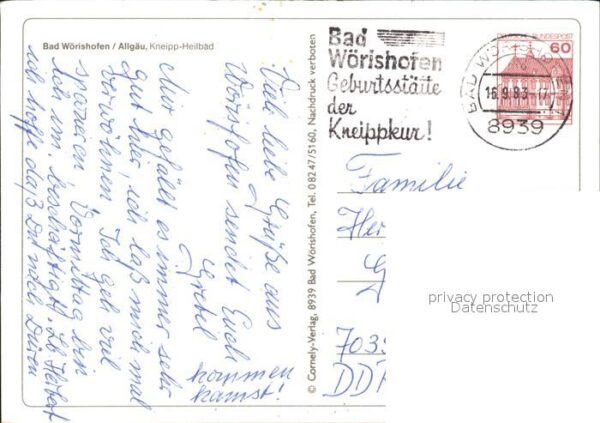 Bad Wörishofen / Allgäu, Kneipp-Heilbad
Viele liebe Grüße aus
Wörishofen sendet Euch
Gretel
Mir gefällt es immer sehr
gut hier, ich laß mich mal
verwöhnen. Ich geh viel
spazieren Vormittag bin
ich im. beschäftigt. Lb Heibert
ich hoffe daß Du nach Düren
kommen
kannst!
© Cornely-Verlag, 8939 Bad Wörishofen, Tel. 0 82 47/5160, Nachdruck verboten
Bad
Wörishofen
Geburtsstätte
der
Kneippkur!
BUNDESPOST
60
BAD WÖRISHOFEN
16.9.83
8939
Familie
Her
G
703
DD
privacy protection
Datenschutz